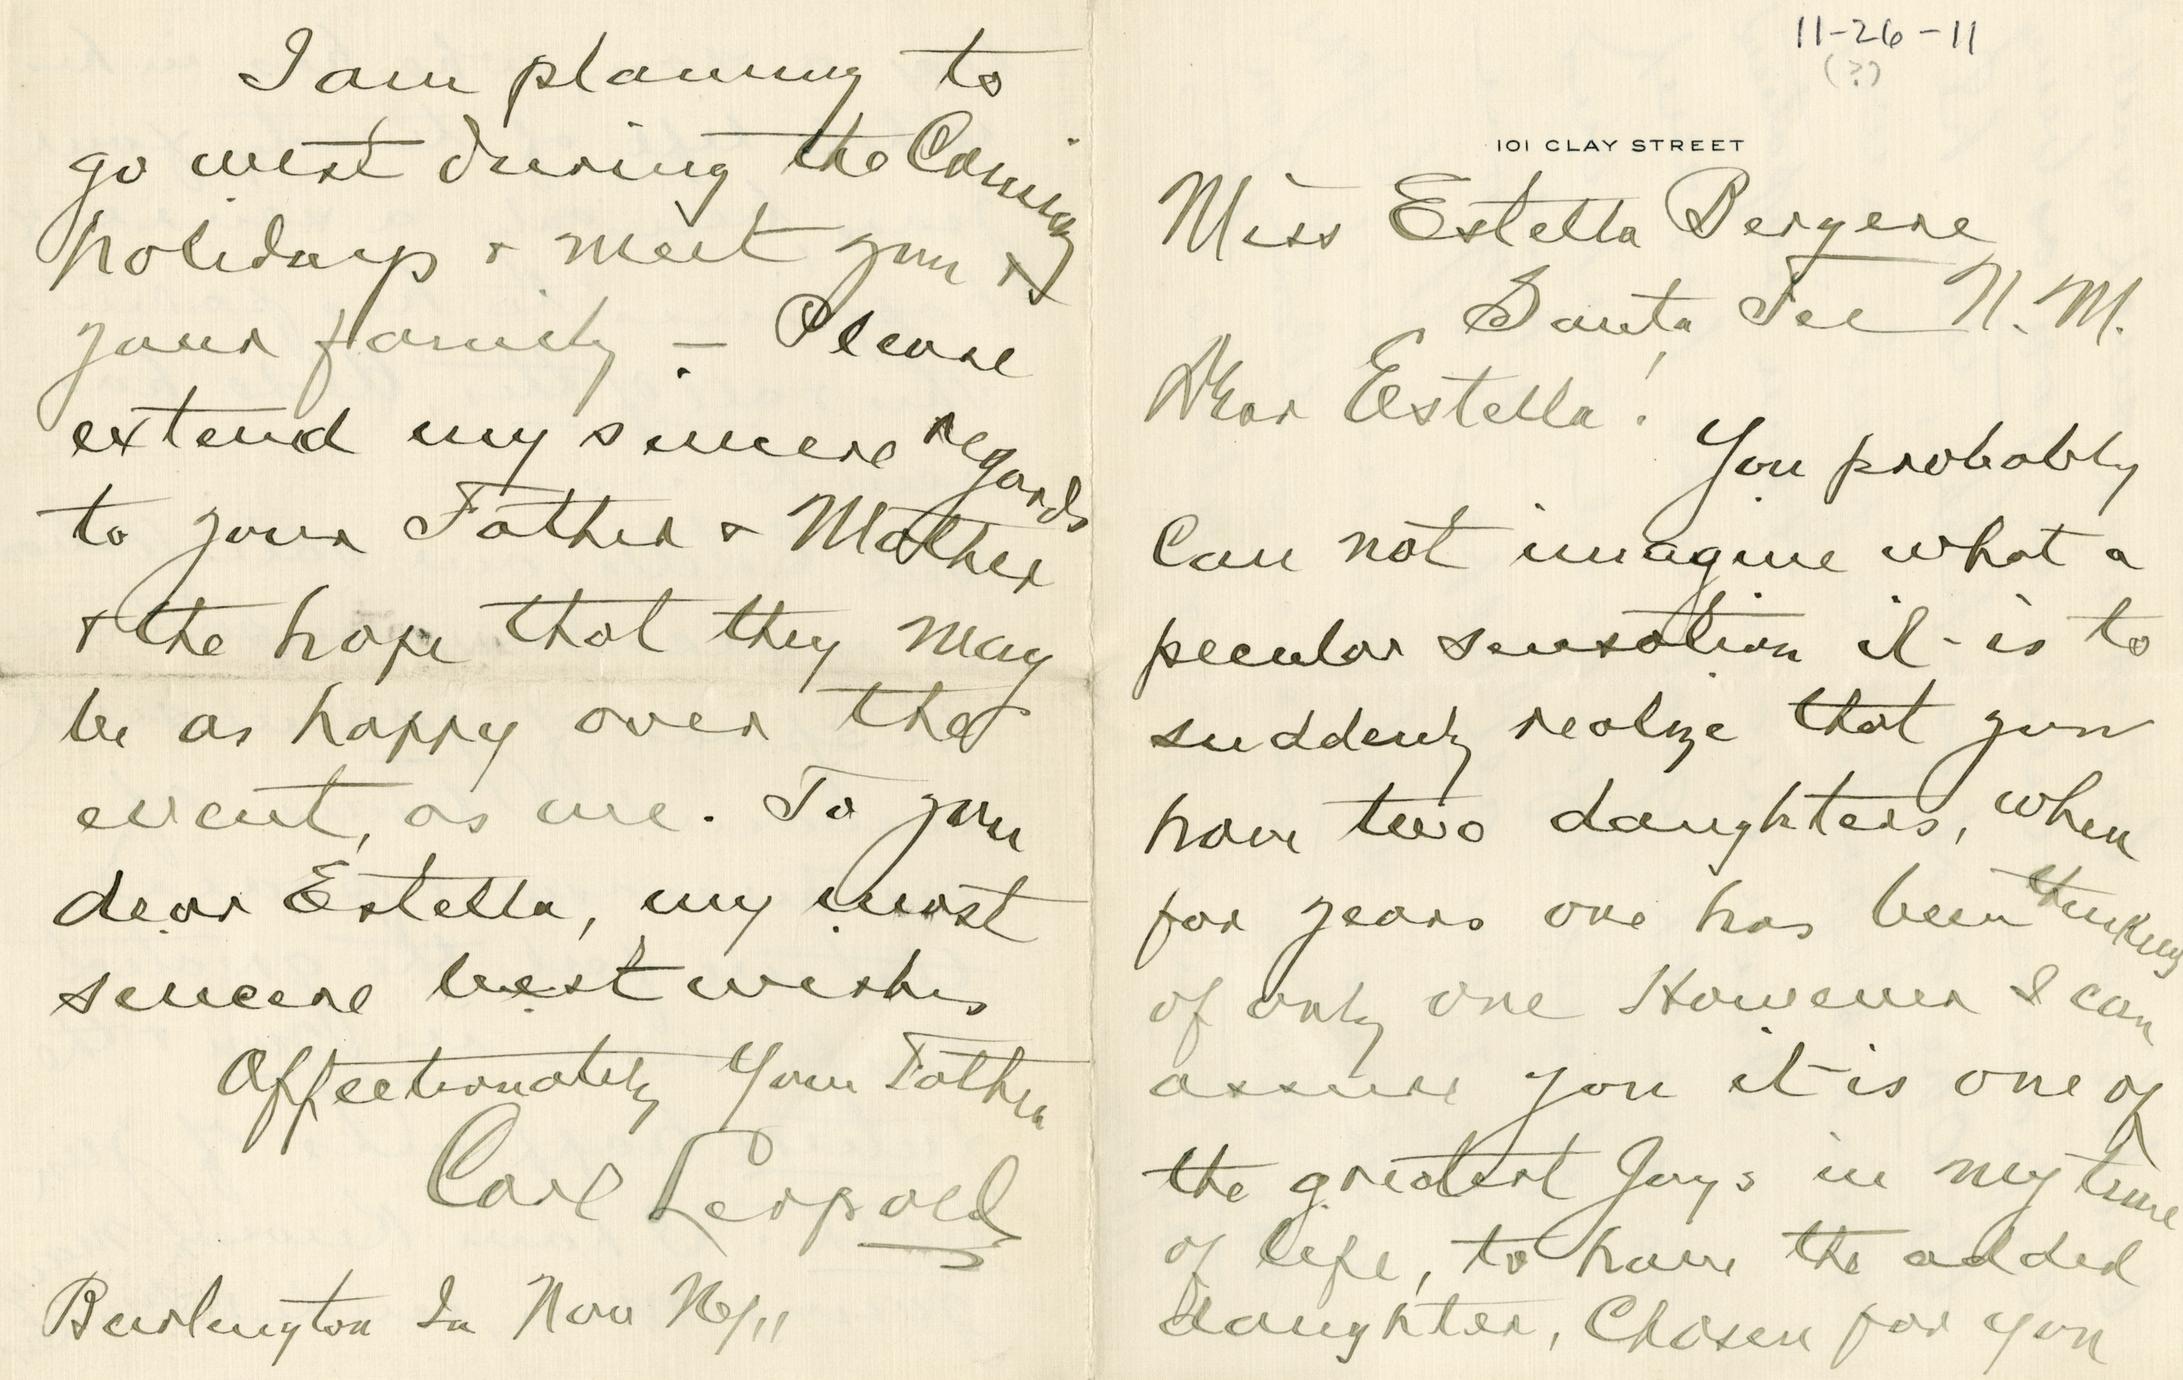 11-26-11
(?)
101 CLAY STREET
Miss Estella Bergere
Santa Fee N.M.
Dear Estella!
You probably
can not imagine what a
peculiar sensation it is to
suddenly realize that you
have two daughters, when
for years one has been thinking
of only one However I can
assure you it is one of
the greatest Joys in my time
of life, to have the added
daughter, Chosen for you
I am planning to
go west during the Coming
holidays & meet you &
your family – Please
extend my sincere regards
to your Father & Mother
& the hope that they may
be as happy over the
event, as we. To you
dear Estella, my most
sincere best wishes
Affectionately Your Father
Carl Leopold
Burlington Ia Nov 26/11